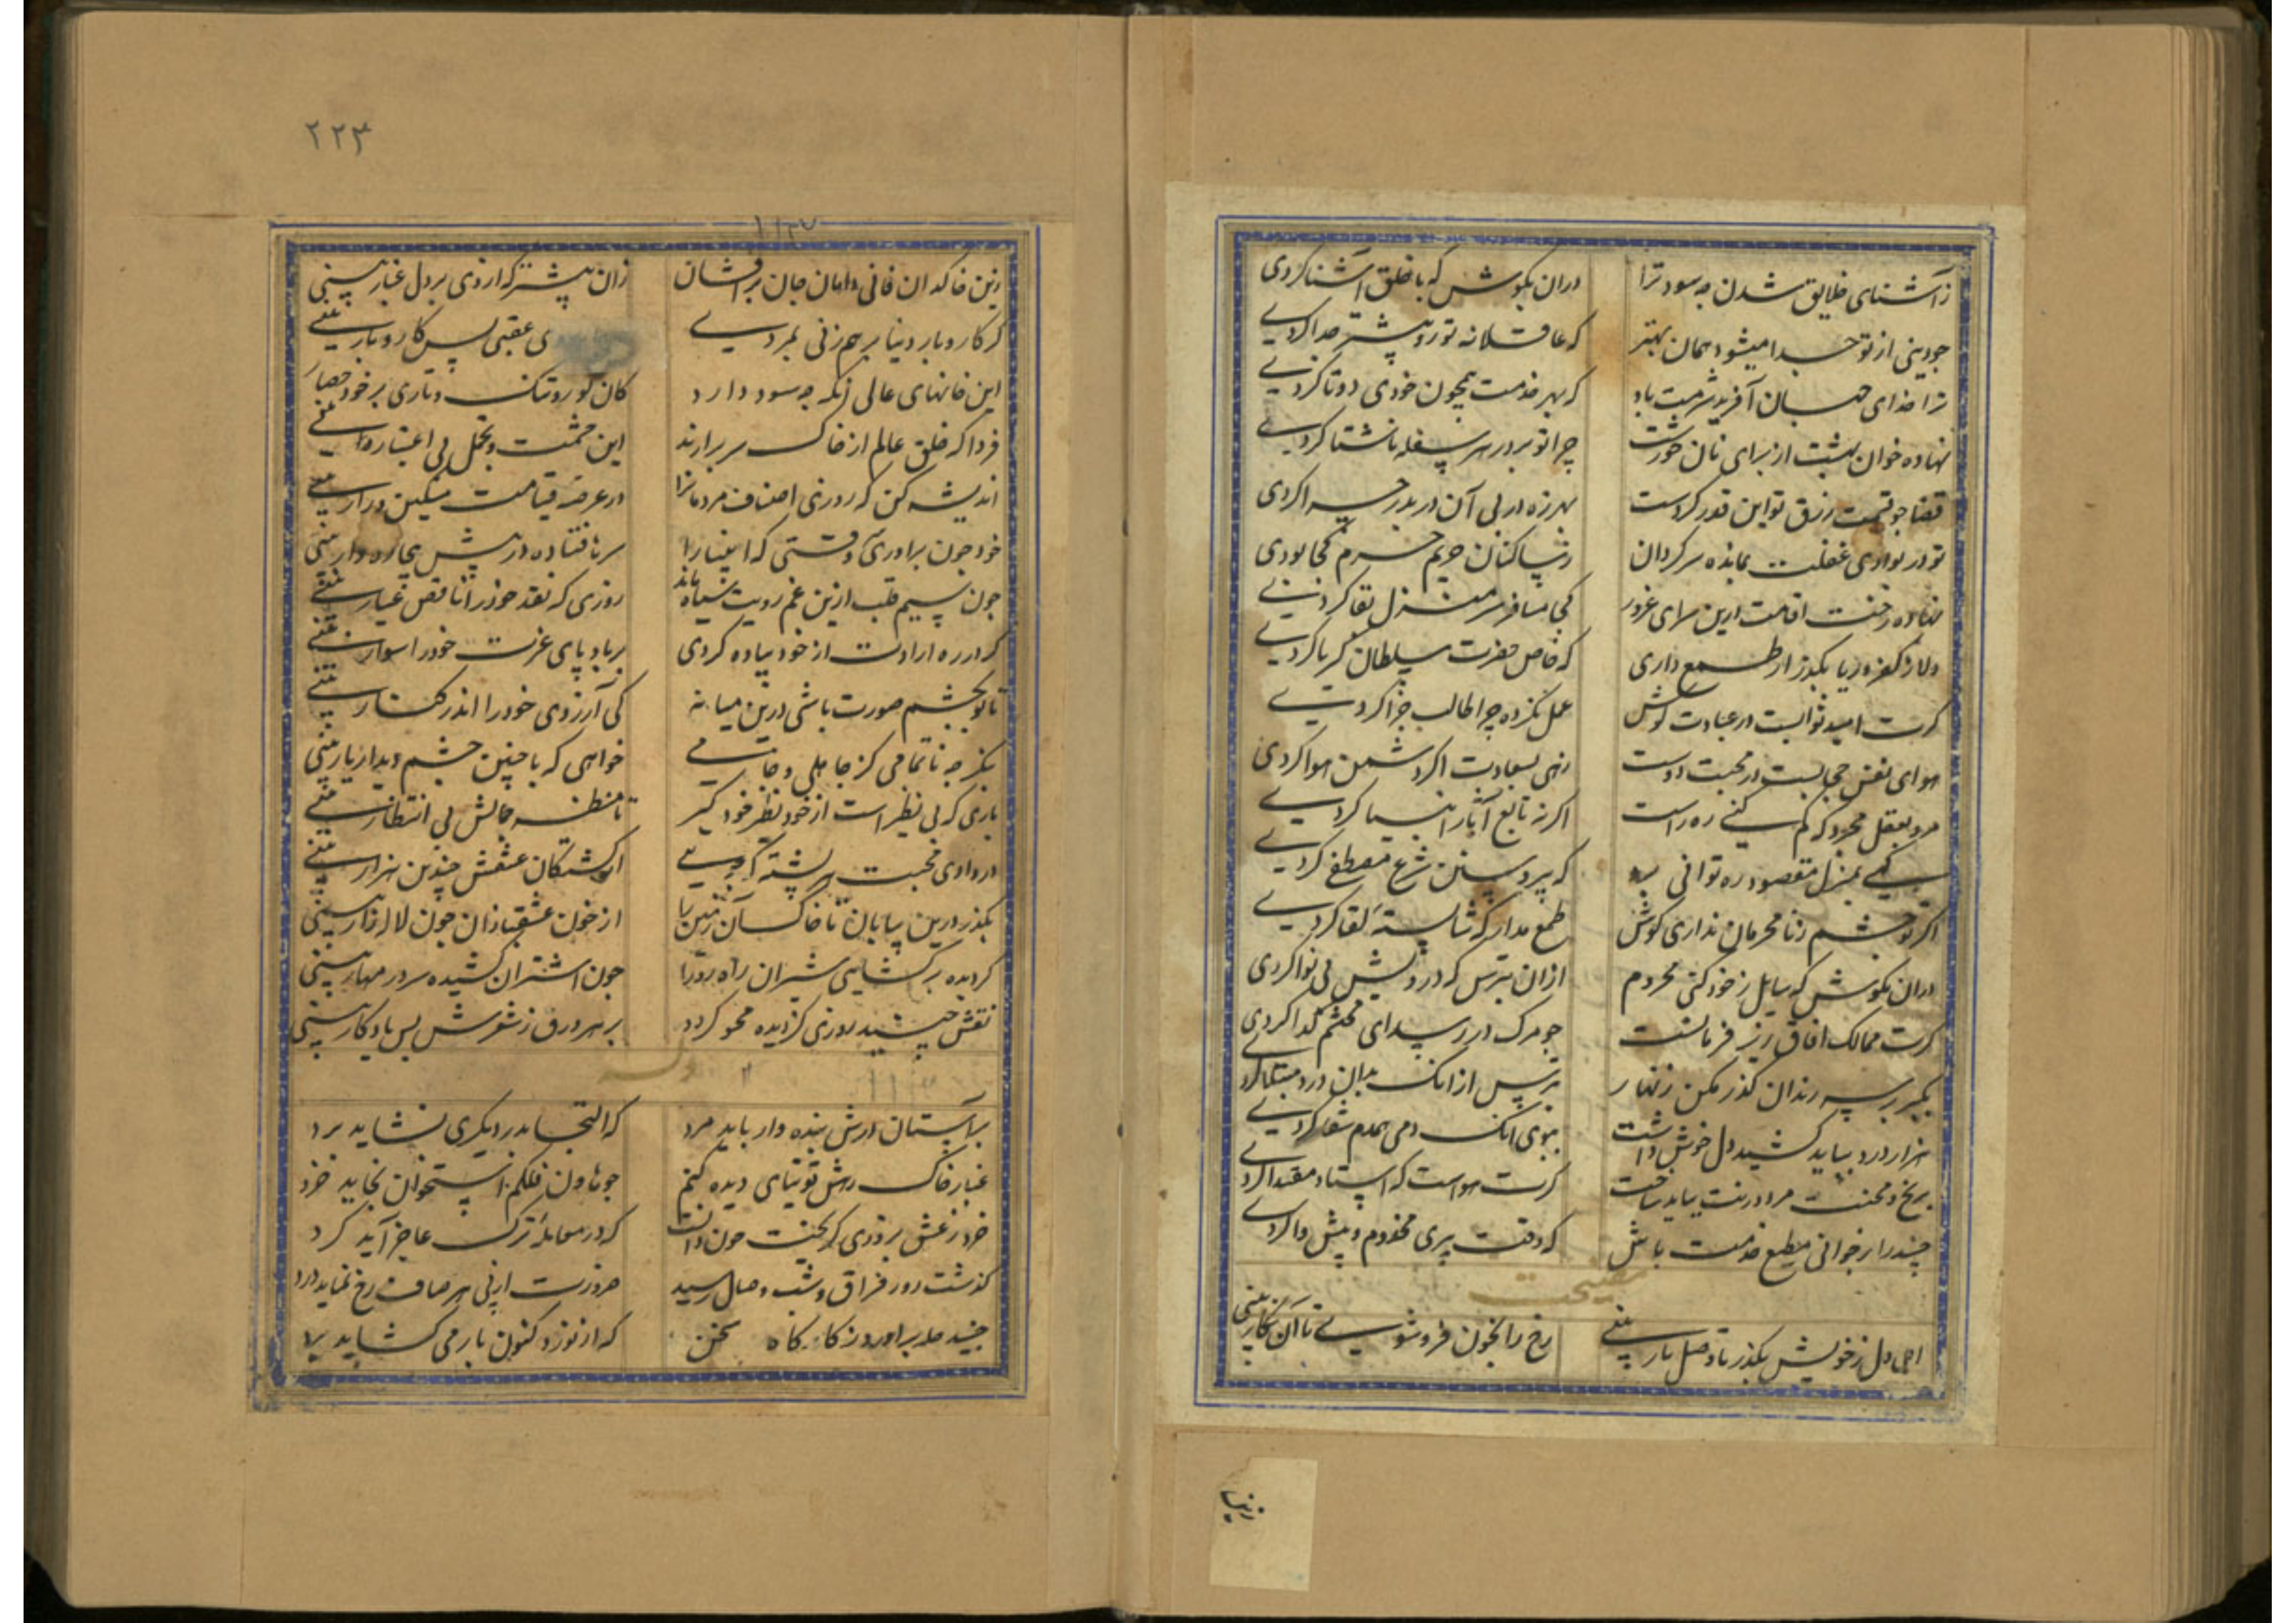 ز آشنای خلایق شدن چه سود ترا
دران بکوش که با خلق آشنا کردی
چو دینی از تو جدا میشود همان بهتر
که عاقلانه تو زو پیشتر جدا کردی
ترا خدای جهان آفرید شرمت باد
که بهر خدمت همچون خودی دو تا کردی
نهاده خوان بهشت از برای نان خورشت
چرا تو بر در هر سفله ناشتا کردی
قضا چو قسمت رزق تو این قدر کردست
بهرزه در پی آن در بدر چرا کردی
تو در بوادی غفلت بمانده سرکردان
حریم حرم کجا بودی
نهاده رخت اقامت درین سرای غرور
کجا مسافر سرمنزل بقا کردی
دلا ز کفر و ریا بکذر ار طمع داری
که خاص حضرت سلطان کبریا کردی
کرت امید ثوابست در عبادت کوش
عمل نکرده چرا طالب جزا کردی
هوای نفس حجابست در محبت دوست
زهی سعادت اکر دشمن هوا کردی
مرو بعقل مجرد که کم کنی ره راست
اکر نه تابع آثار انبیا کردی
کهی بمنزل مقصود ره توانی برد
که پیرو سنن شرع مصطفی کردی
اکر تو چشم ز نامحرمان نداری کوش
طمع مدار که شایسته لقا کردی
دران مکوش که سایل ز خود کنی محروم
ازان بترس که درویش بی نوا کردی
کرت ممالک افاق زیر فرمانست
چو مرک در رسد ای محتشم کدا کردی
بکبر بر سر رندان کذر مکن زنهار
بترس از انک بدان درد مبتلا کردی
هزار درد بباید کشید و دل خوش داشت
ببوی انک دمی همدم شفا کردی
برنج و محنت مرد درنت بباید ساخت
کرت هواست که استاد مقتدا کردی
جنید را بجوانی مطیع خدمت باش
که وقت پیری مخدوم و پیشوا کردی
نصیحت
ای دل ز خویش بکذر تا وصل یار بینی
رخ را بخون فروشوی تا آن نکار بینی
زینسا
۲۲۳
زین خاکدان فانی دامان جان برافشان
زان پیشتر که از وی بر دل غبار بینی
کر کاروبار دنیا بر هم زنی بمردی
ی عقبی پس کاروبار بینی
این خانهای عالی زانکه چه سود دارد
کان کور و تنک و تاری بر خود حصار بینی
فردا که خلق عالم از خاک سر برارند
این حشمت و تجمل بی اعتبار بینی
اندیشه کن که روزی اصناف مردمانرا
در عرصه قیامت مسکین و زار بینی
خود چون برآوری وقتی که اغنیا را
سر نافتاده در پیش بیچاره وار بینی
چون سیم قلب ازین غم رویت سیاه ماند
روزی که نقد خود را ناقص عیار بینی
کر در ره ارادت از خود پیاده کردی
بر باد پای عزت خود را سوار بینی
تا تو بچشم صورت باشی درین میانه
کی آرزوی خود را اندر کنار بینی
بنکر چه ناتمامی کز جاهلی و خامی
خواهی که با چنین چشم دیدار یار بینی
یاری که بی نظیر است از خود نظر فرو کیر
تا منظر جمالش بی انتظار بینی
در وادی محبت سرکشته کردی
از کشتکان عشقش چندین هزار بینی
بکذر درین بیابان تا خاک آن زمین را
از خون عشقبازان چون لاله زار بینی
کردیده بر کشایی شیران راه رو را
چون اشتران کشیده سر در مهار بینی
نقش جنید روزی کز دیده محو کردد
بر هر ورق ز شعرش بس یادکار بینی
وله
بر آستان درش بنده وار باید مرد
که التجا بدر دیکری نشاید برد
غبار خاک رهش توتیای دیده کنم
چو هاون فلکم استخوان بخاید خرد
خرد ز عشق بروزی که بخت چون دانست
که در معامله ترک عاجز آید کرد
کذشت روز فراق و شب وصال رسید
ضرورت از پی هر صاف رخ نماید درد
جنید
که از نوزد کنون بار می نشاید برد